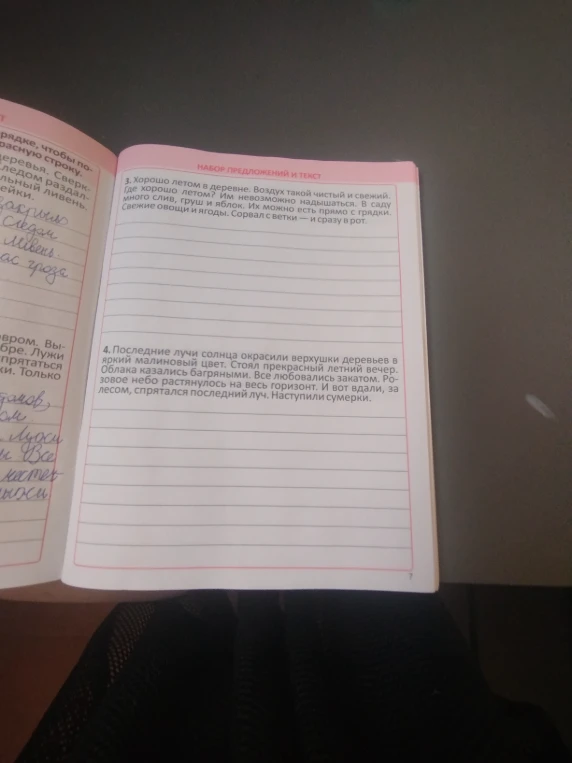 рядке, чтобы по-
расную строку.
деревья. Сверк-
ледом раздал-
льный ливень.
ейки.
Следом
ливень.
ас гроза
вром. Вы-
бре. Лужи
прятаться
ки. Только
ом
Лужи
и Все
НАБОР ПРЕДЛОЖЕНИЙ И ТЕКСТ
3. Хорошо летом в деревне. Воздух такой чистый и свежий.
Где хорошо летом? Им невозможно надышаться. В саду
много слив, груш и яблок. Их можно есть прямо с грядки.
Свежие овощи и ягоды. Сорвал с ветки — и сразу в рот.
4. Последние лучи солнца окрасили верхушки деревьев в
яркий малиновый цвет. Стоял прекрасный летний вечер.
Облака казались багряными. Все любовались закатом. Ро-
зовое небо растянулось на весь горизонт. И вот вдали, за
лесом, спрятался последний луч. Наступили сумерки.
7